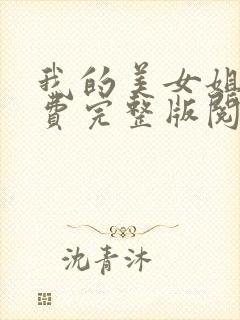 我的美女姐
费完整版阅
沈青沐